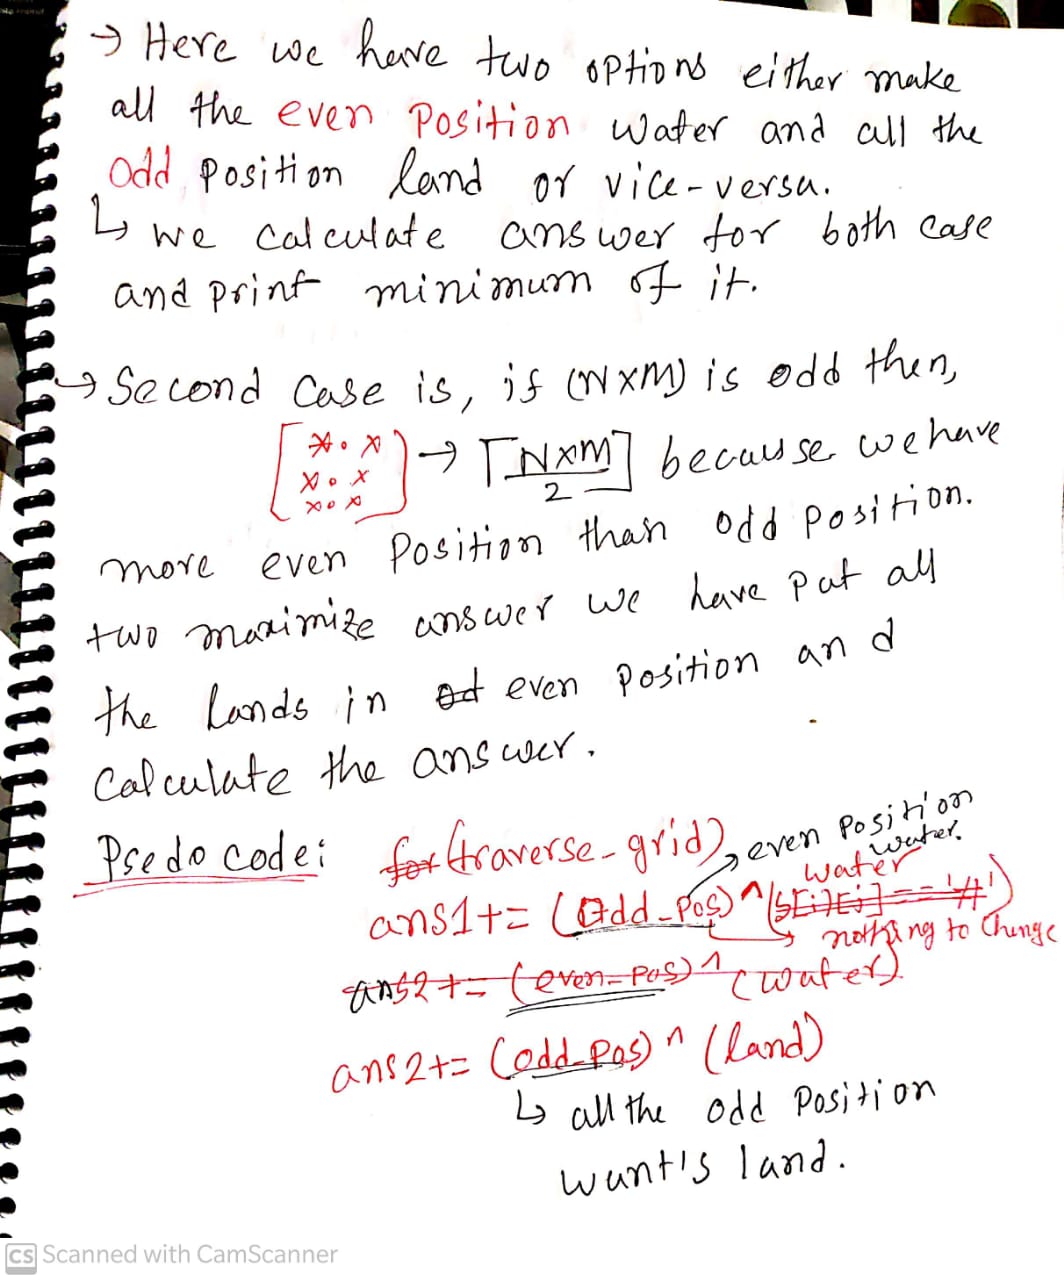 → Here we have two options either make
all the even position water and all the
odd position land or vice-versa.
↳ we calculate answer for both case
and print minimum of it.
→ Second case is, if (N×M) is odd then,
[ * . x ] → ⌈N×M/2⌉ because we have
x . x
x . x
more even position than odd position.
two maximize answer we have put all
the lands in od even position and
calculate the answer.
Psedo code: for (traverse-grid) even position
water.
water
ans1+= (odd_pos) ^ (s[i][j]=='#')
nothing to change
ans2+= (even-pos) ^ (water)
ans2+= (odd-pos) ^ (land)
↳ all the odd position
want's land.
CS Scanned with CamScanner